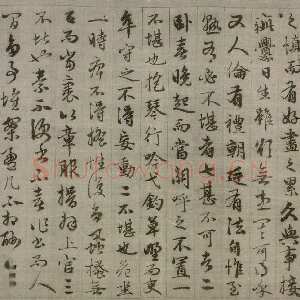 之慎而有好盡之累久與事接
疵釁日生雖欲無患其可得乎
又人倫有禮朝廷有法自惟至
熟有必不堪者七甚不可者二
卧喜晚起而當關呼之不置一
不堪也抱琴行吟弋釣草野而吏
卒守之不得妄動二不堪也危坐
一時痹不得搖性復多虱把搔無
已而當裹以章服揖拜上官三
不堪也素不便書又不喜作書而人
間多事堆案盈几不相酬